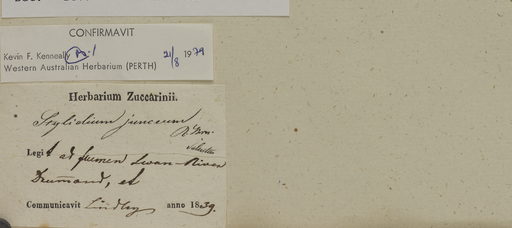 CONFIRMAVIT
Kevin F. Kenneally 21/8 1979
Western Australian Herbarium (PERTH)
Herbarium Zuccarinii.
Stylidium junceum R. Brown
Legit ad flumen Swan-River
Drummond, et
Communicavit Lindley anno 1839.